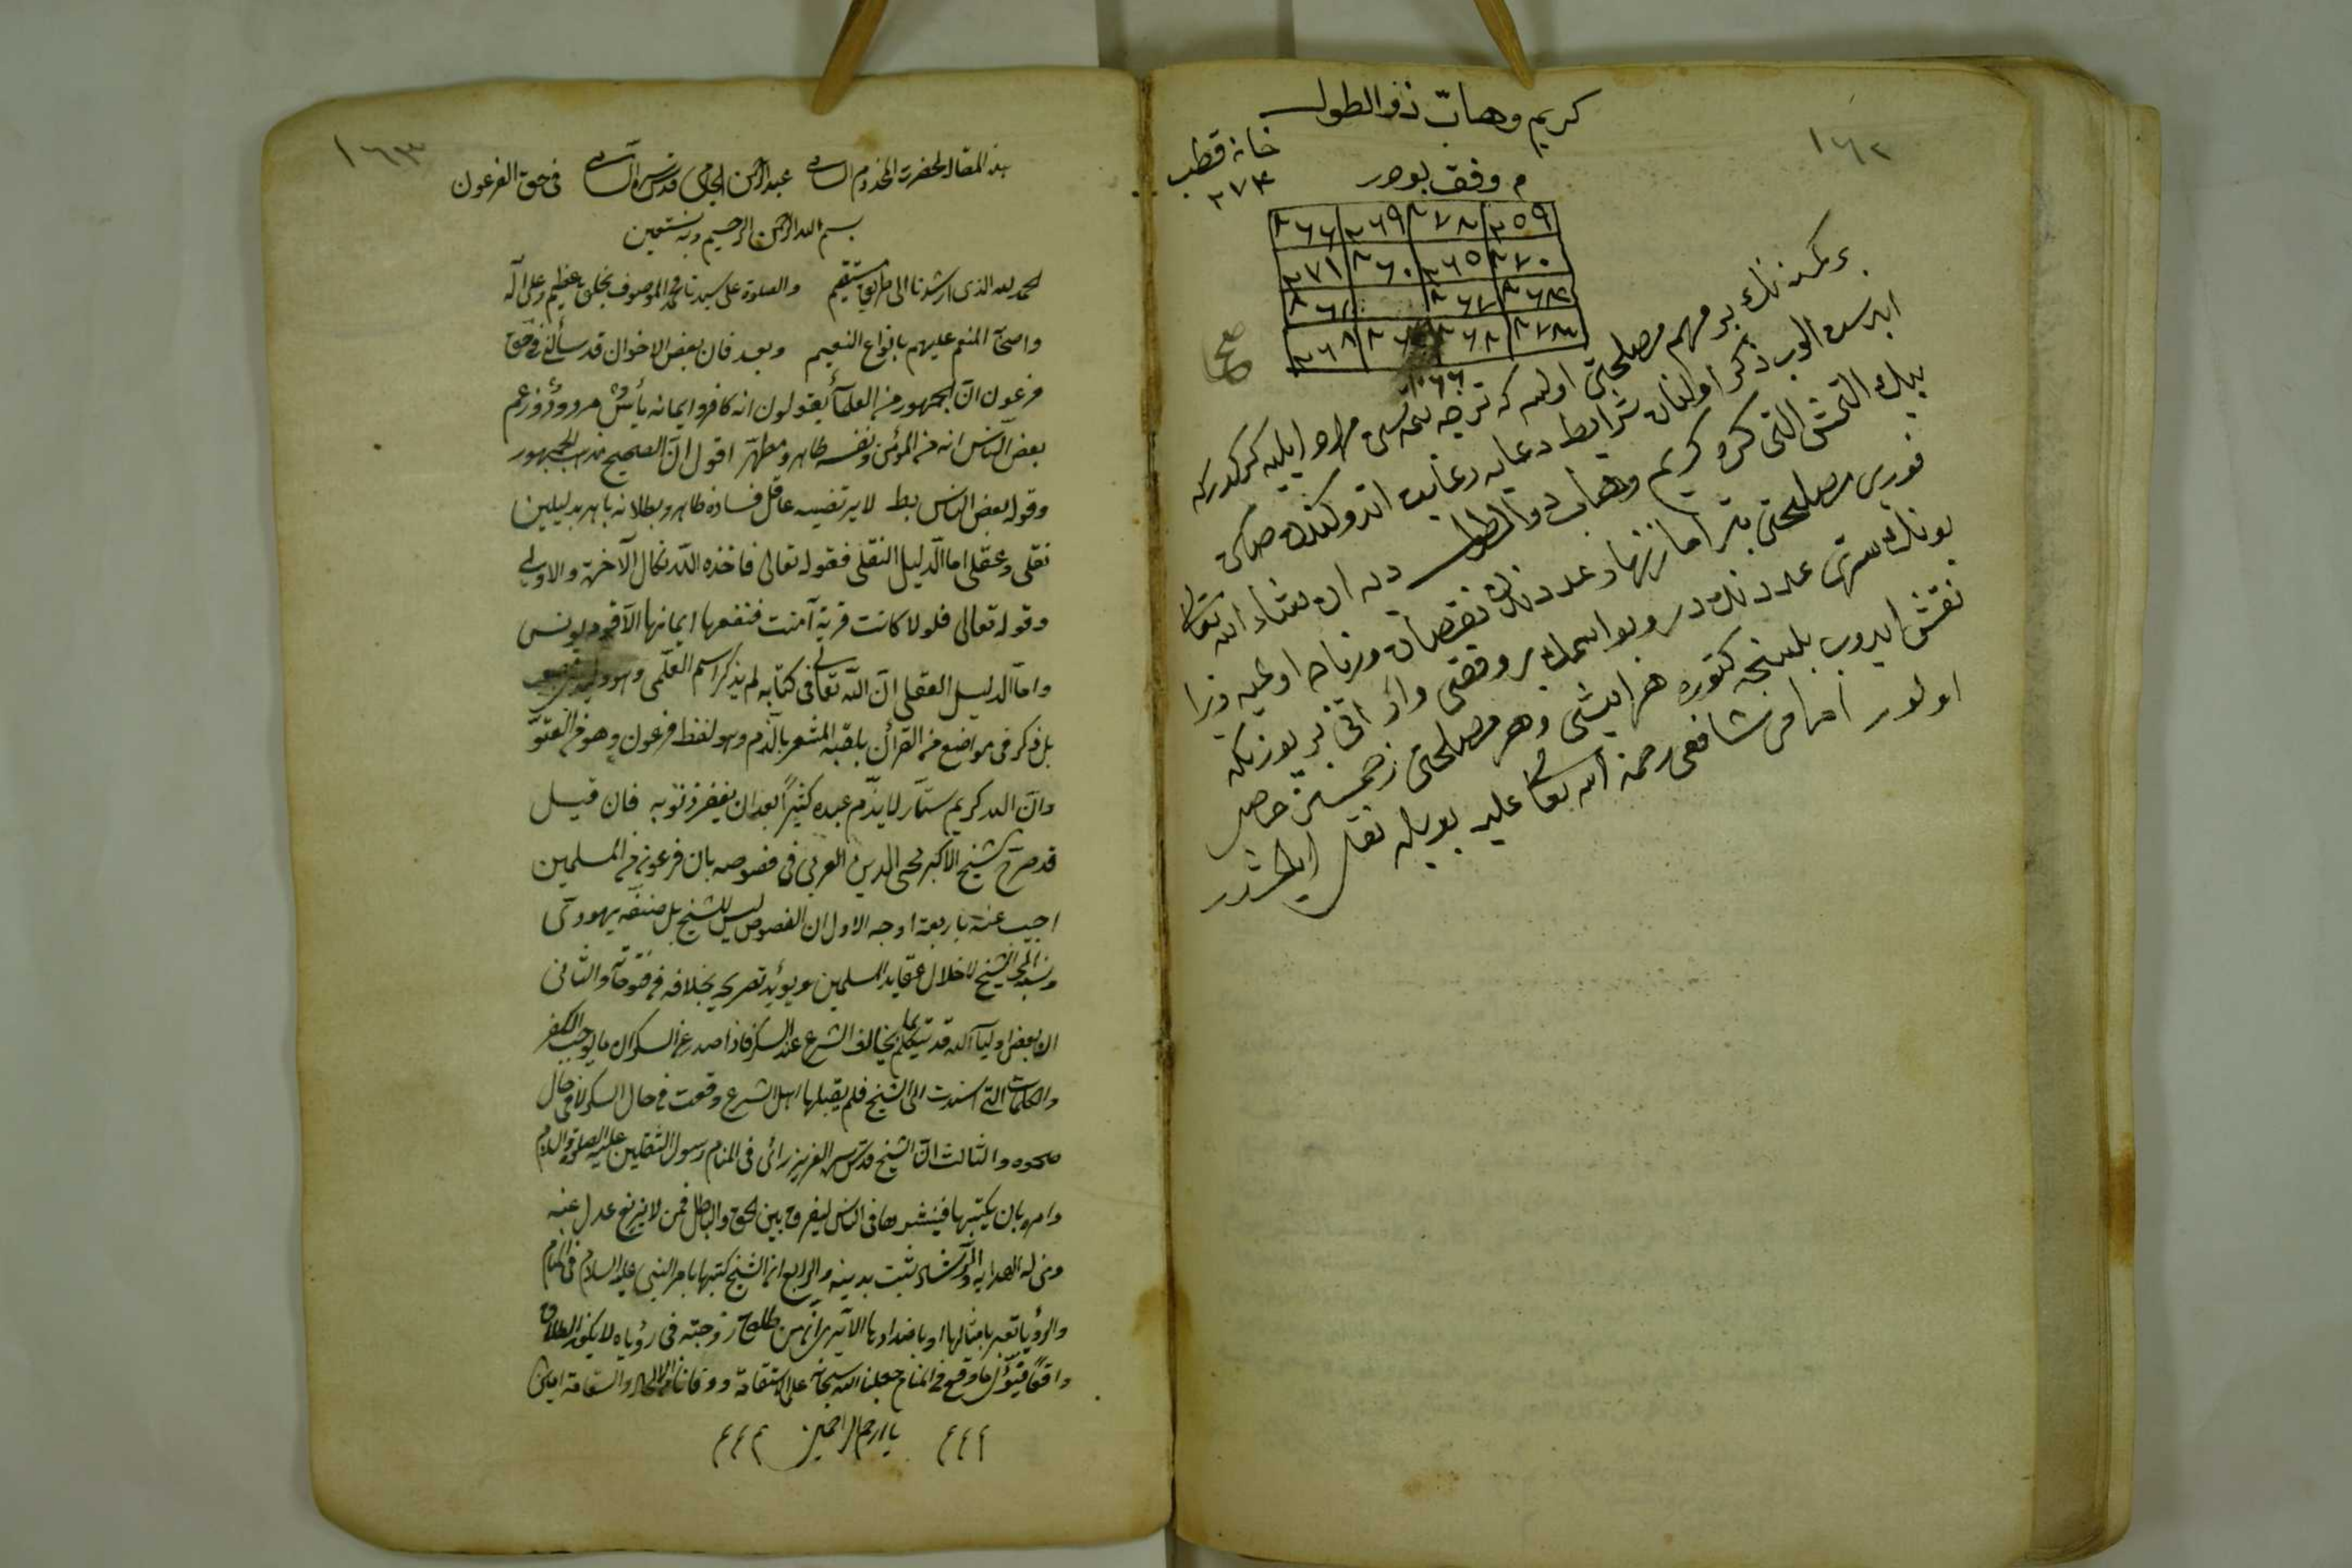 ١٦٢
كريم وهاب ذو الطول
خانه قطب
٢٧٣
م وفق بودر
٢٦٦ ٢٦٩ ٢٧٢ ٢٥٩
٢٧١ ٢٦٠ ٢٦٥ ٢٧٠
بر كمسنه نك بر مهم مصلحتى اولسه كه
ايدرسه الوب ذكر اولنان شرايط دعايه رعايت
كره كريم وهاب ذو الطول ديه ان شاء الله تعالى
فورى مصلحتى بتر اما زنهار عددنك نقصان وزياده اوليه زيرا
بونك سرى عدد نك در وبو اسمك بر وفقى وار
نقش ايدوب بلسنجه كتوره هر ايشى وهر مصلحتى حاصل
اولور امام شافعى رحمة الله تعالى عليه بويله نقل ايلمشدر
١٦٣
هذه المقالة لحضرت المخدوم السامى عبد الرحمن الجامى قدس سره السامى فى حق الفرعون
بسم الله الرحمن الرحيم وبه نستعين
الحمد لله الذى ارشدنا الى طريق مستقيم والصلوة على سيدنا محمد الموصوف بخلق عظيم وعلى آله
واصحابه المنعم عليهم بانواع النعيم وبعد فان بعض الاخوان قد سألنى فى حق
فرعون ان الجمهور من العلماء يقولون انه كافر وايمانه يأس مردود وزعم
بعض الناس انه من المؤمن ونفسه طاهر ومطهر اقول ان الصحيح مذهب الجمهور
وقول بعض الناس بط لا يرتضيه عاقل فساده ظاهر وبطلانه باهر بدليلين
نقلى وعقلى اما الدليل النقلى فقوله تعالى فاخذه الله نكال الآخرة والاولى
وقوله تعالى فلولا كانت قرية آمنت فنفعها ايمانها الا قوم يونس
واما الدليل العقلى ان الله تعالى فى كتابه لم يذكر اسم العلمى وهو وليد
بل ذكر فى مواضع من القرآن بلقبه المشعر بالذم وهو لفظ فرعون وهو من العتو
وان الله كريم ستار لا يذم عبده كثيرا بعد ان يغفر ذنوبه فان قيل
قد صرح الشيخ الاكبر محى الدين العربى فى فصوصه بان فرعون من المسلمين
اجيب عنه باربعة اوجه الاول ان الفصوص ليس للشيخ بل صنفه يهودى
ونسبه الى الشيخ لاخلال عقايد المسلمين ويؤيد تصريحه بخلافه فى فتوحاته والثانى
ان بعض اولياء الله قد يتكلم بما يخالف الشرع عند السكر فاذا صدر عن السكران ما يوجب الكفر
والكلمات التى اسندت الى الشيخ فلم يقبلها اهل الشرع وقعت فى حال السكر لا فى حال
صحوه والثالث ان الشيخ قدس سره العزيز رأى فى المنام رسول الثقلين عليه الصلوة والسلام
وامره بان يكتبها فينشرها فى الناس ليفرق بين الحق والباطل فمن لا يزيغ عدل عنه
ومن له الهداية والرشاد ثبت بدينه والرابع ان الشيخ كتبها بامر النبى عليه السلام فى المنام
والرؤيا تعبر بامثالها او باضدادها الا يرى ان من طلق زوجته فى رؤياه لا يكون الطلاق
واقعا فيؤل ما وقع فى المنام جعلنا الله سبحانه على الاستقامة ووقانا من الالحاد والسقامة امين
يا ارحم الراحمين